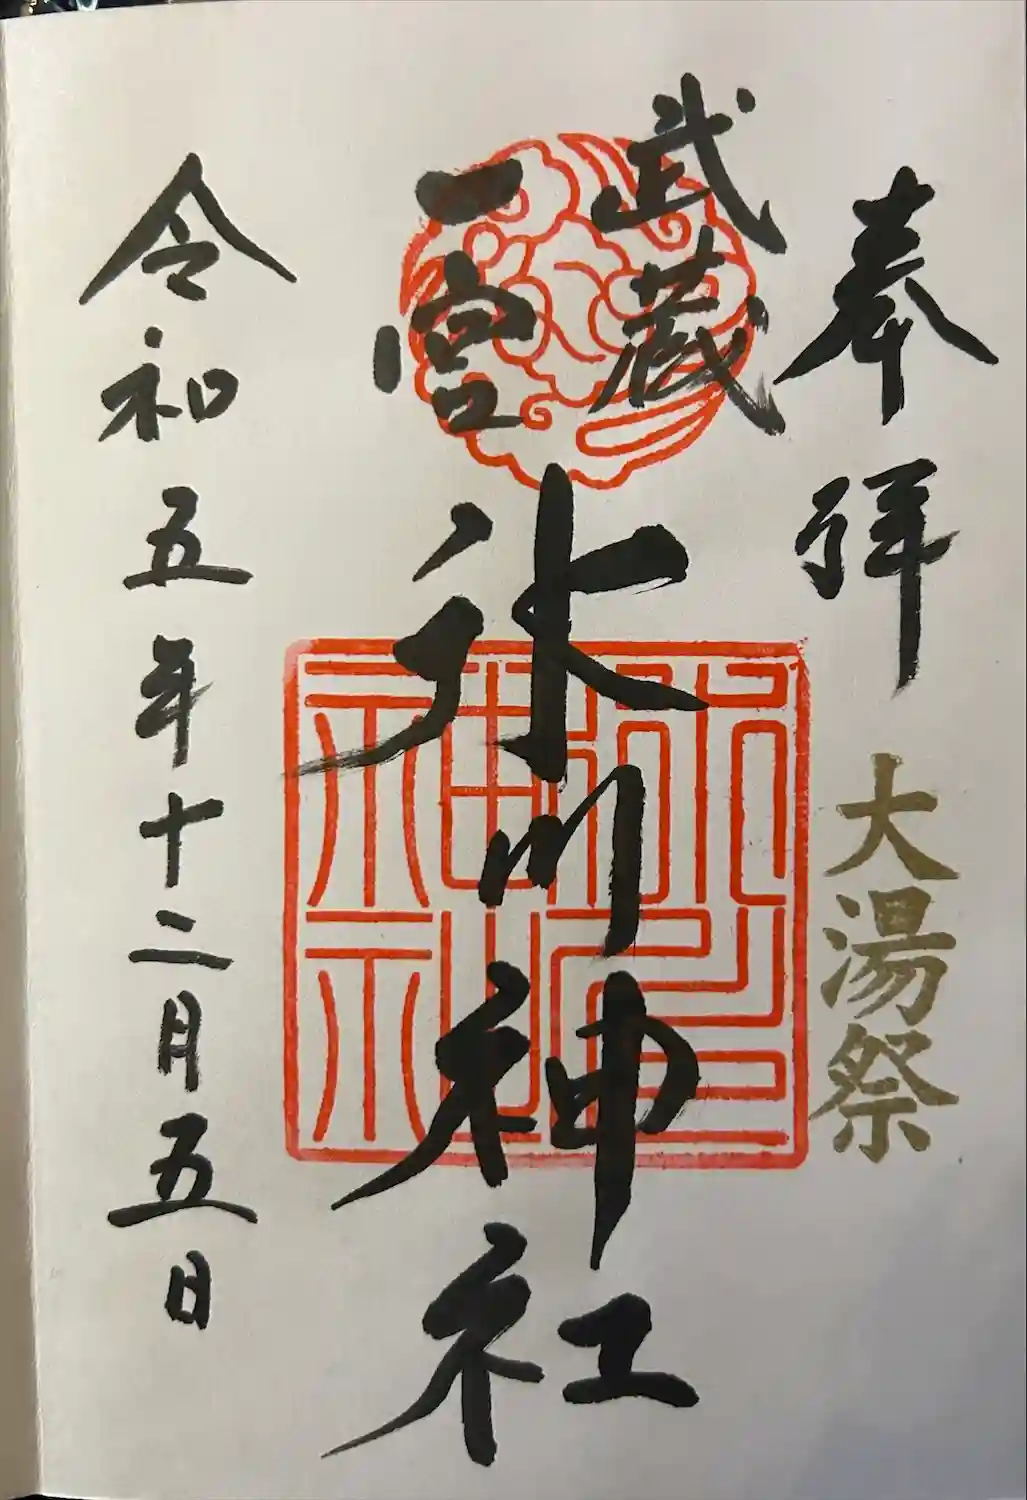 奉拝
大湯祭
武蔵
一宮
氷川神社
氷川神社
令和五年十二月五日